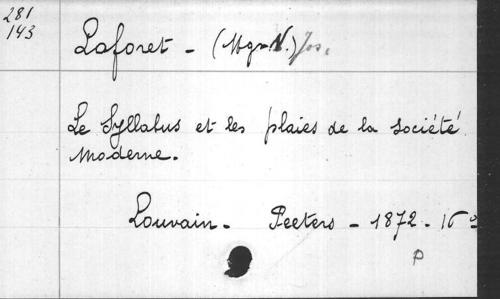 281
143
Laforet - (Mgr N.) Jos.
Le Syllabus et les plaies de la société
moderne.
Louvain - Peeters - 1872 - 16°
P